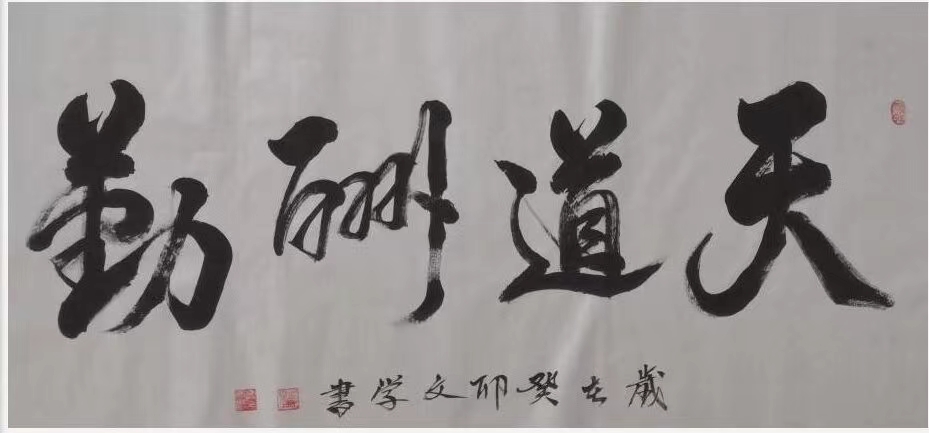 天道酬勤
歲在癸卯文学書